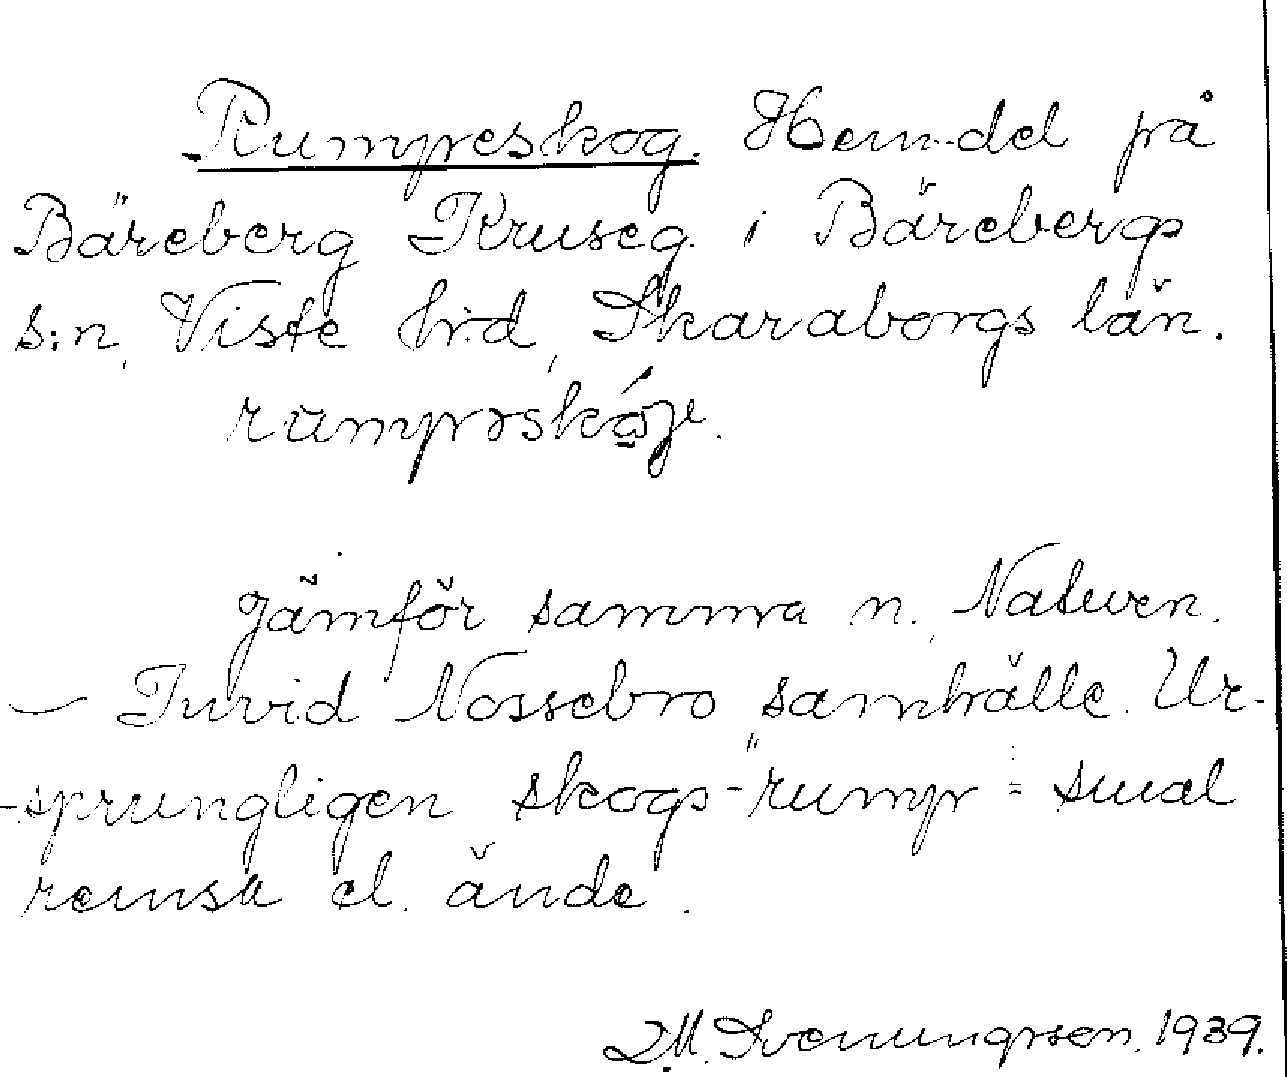 Rumpeskog. Hem-del på
Bäreberg Kruseg. i Bärebergs
s:n, Viste h:d, Skaraborgs län.
Jämför samma n., Naturen.
– Invid Nossebro samhälle. Ur-
-sprungligen skogs-"rump" = smal
remsa el. ände.
M. Svenungsson. 1939.